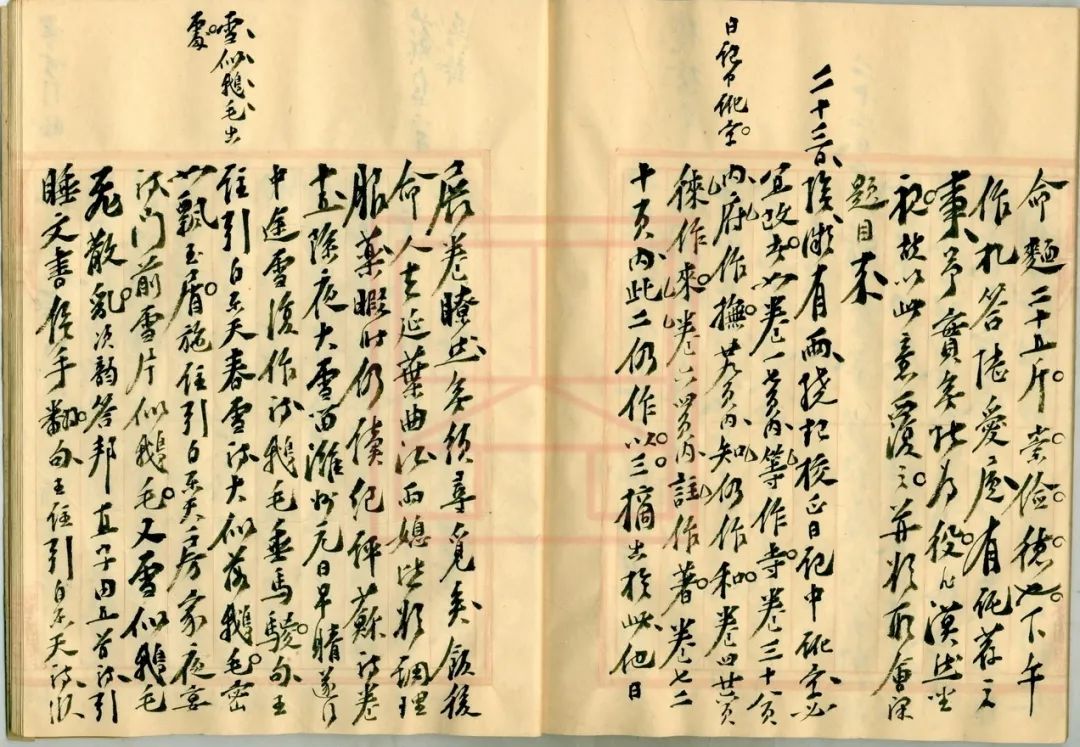 命麵二十五斤。崇儉德也。下午
作札答陸愛廬有託荐之
事。予實無能為役。只漠然坐
視。故以此意覆之。并將所
題目奉
二十三日、陰微有雨撓起校正日記中訛字。必
日記中訛字。
宜改者。如卷一頁内等作寺。卷三十八頁
内府作撫。頁内知仍作和。卷四廿六頁
徠作來。卷六四頁内註作著。卷七二
十頁内此二仍作以三。摘出於此他日
展卷瞭然無須尋覓矣飯後
命人去延葉曲江兩媳皆欲調理
服藥暇時仍續紀評蘇詩卷
十五除夜大雪留濰州元日早晴遂行
中途雪復作詩鵝毛垂馬騣句王
雪似鵝毛出
處。
註引白樂天春雪詩大似落鵝毛。密
如飄玉屑。施註引白樂天房家夜宴
詩門前雪片似鵝毛。又雪似鵝毛
飛散亂。次韵答邦直子由五首詩引
睡文書信手翻。句王註引白樂天詩